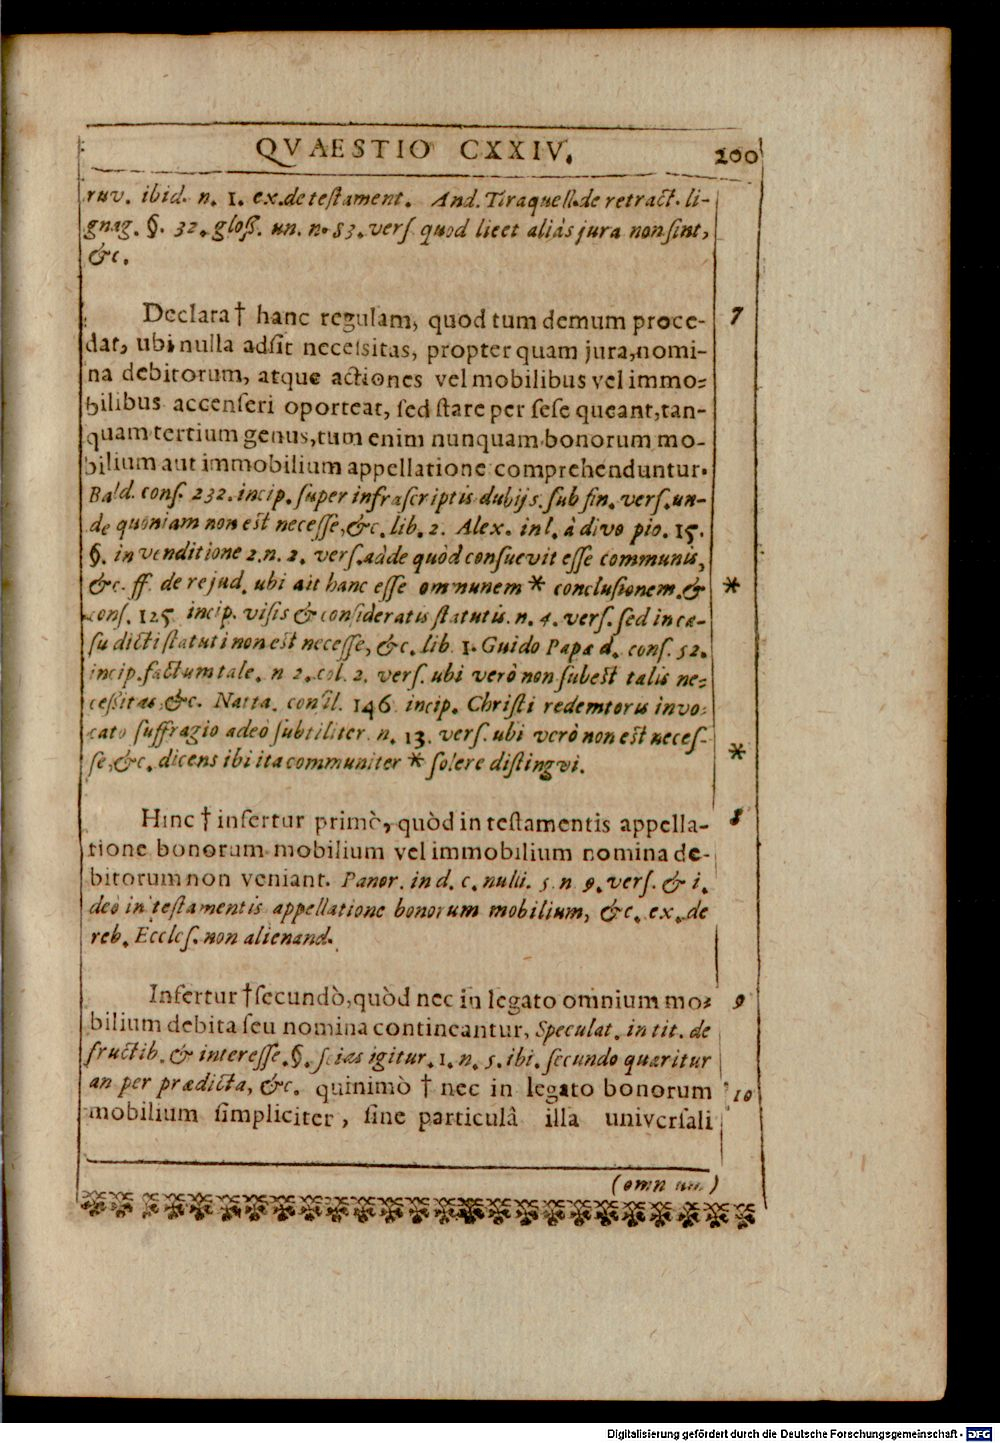 QVAESTIO CXXIV. 200
ruv. ibid. n. 1. ex. de testament. And. Tiraquell. de retract. li-
gnag. §. 32. gloß. un. n. 83. vers quod licet aliàs jura non sint,
&c.
Declara† hanc regulam, quod tum demum proce- 7
dat, ubi nulla adsit necessitas, propter quam jura, nomi-
na debitorum, atque actiones vel mobilibus vel immo-
bilibus accenseri oporteat, sed stare per sese queant, tan-
quam tertium genus, tum enim nunquam bonorum mo-
bilium aut immobilium appellatione comprehenduntur.
Bald. cons. 232. incip. super infrascriptis dubijs. sub fin. vers. un-
de quoniam non est necesse, &c. lib. 2. Alex. in l. à divo pio. 15.
§. in venditione 2. n. 2. vers. adde quòd consuevit esse communis,
&c. ff. de re jud. ubi ait hanc esse omnunem * conclusionem. & *
cons. 125 incip. visis & consideratis statutis. n. 4. vers. sed in ca-
su dicti statuti non est necesse, &c. lib 1. Guido Papæ d. cons. 52.
incip. factum tale. n 2. col. 2. vers. ubi verò non subest talis ne-
ceßitas, &c. Natta. consil. 146 incip. Christi redemtoris invo-
cato suffragio adeò subtiliter. n. 13. vers. ubi verò non est neces-
se, &c. dicens ibi ita communiter * solere distingvi. *
Hinc † infertur primò, quòd in testamentis appella- 8
tione bonorum mobilium vel immobilium nomina de-
bitorum non veniant. Panor. in d. c. nulli. 5. n 9. vers. & i.
deò in testamentis appellatione bonorum mobilium, &c. ex. de
reb. Eccles. non alienand.
Infertur † secundò, quòd nec in legato omnium mo- 9
bilium debita seu nomina contineantur, Speculat. in tit. de
fructib. & interesse. §. scias igitur. 1. n. 5. ibi. secundo quæritur
an per prædicta, &c. quinimò † nec in legato bonorum 10
mobilium simpliciter, sine particulâ illa universali
(omn um)
Digitalisierung gefördert durch die Deutsche Forschungsgemeinschaft - DFG